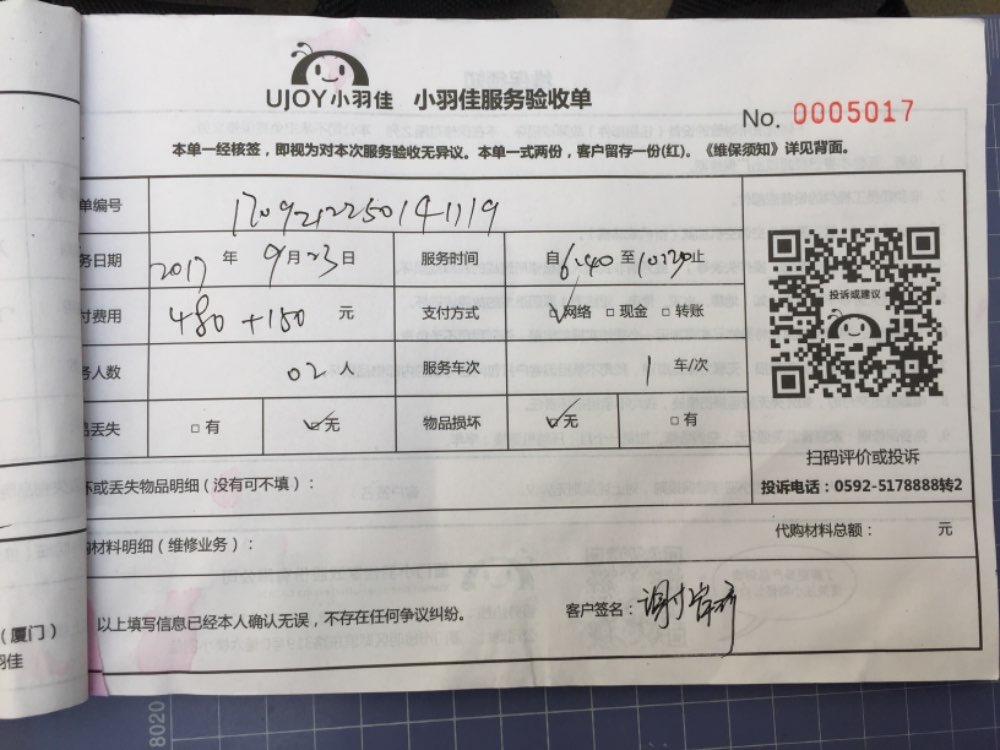 UJOY小羽佳 小羽佳服务验收单
No. 0005017
本单一经核签，即视为对本次服务验收无异议。本单一式两份，客户留存一份(红)。《维保须知》详见背面。
单编号 170921225014119
务日期 2017 年 9 月 23 日 服务时间 自 6:40 至 10:30 止
付费用 480+150 元 支付方式 ☑网络 □现金 □转账
务人数 02 人 服务车次 1 车/次
品丢失 □有 ☑无 物品损坏 ☑无 □有
投诉或建议
扫码评价或投诉
投诉电话：0592-5178888转2
坏或丢失物品明细（没有可不填）：
购材料明细（维修业务）：
代购材料总额： 元
以上填写信息已经本人确认无误，不存在任何争议纠纷。
客户签名：谢
（厦门）
羽佳
8020